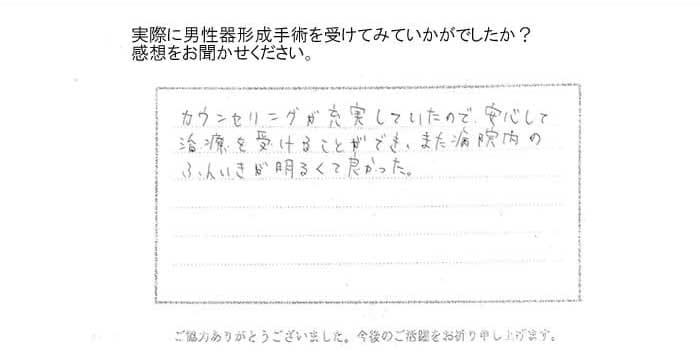 実際に男性器形成手術を受けてみていかがでしたか？
感想をお聞かせください。
カウンセリングが充実していたので、安心して
治療を受けることができ、また病院内の
ふんいきが明るくて良かった。
ご協力ありがとうございました。今後のご活躍をお祈り申し上げます。